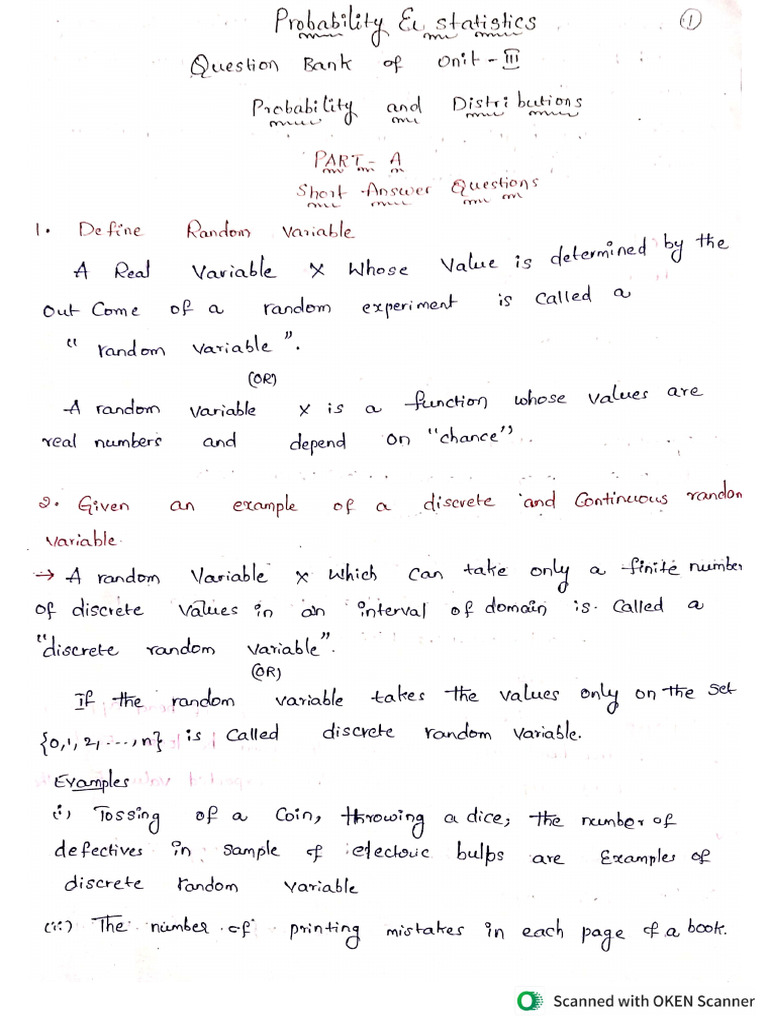 Probability & statistics
1
Question Bank of Unit - III
Probability and Distributions
PART - A
Short Answer Questions
1. Define Random Variable
A Real Variable X Whose Value is determined by the
Out Come of a random experiment is called a
" random variable ".
(OR)
A random variable X is a function whose values are
real numbers and depend on "chance".
2. Given an example of a discrete and Continuous random
variable.
→ A random Variable X which can take only a finite number
of discrete values in an interval of domain is called a
"discrete random variable".
(OR)
If the random variable takes the values only on the set
{0,1,2,...,n} is called discrete random variable.
Examples
(i) Tossing of a Coin, throwing a dice, the number of
defectives in sample of electouic bulps are Examples of
discrete random variable
(ii) The number of printing mistakes in each page of a book.
Scanned with OKEN Scanner